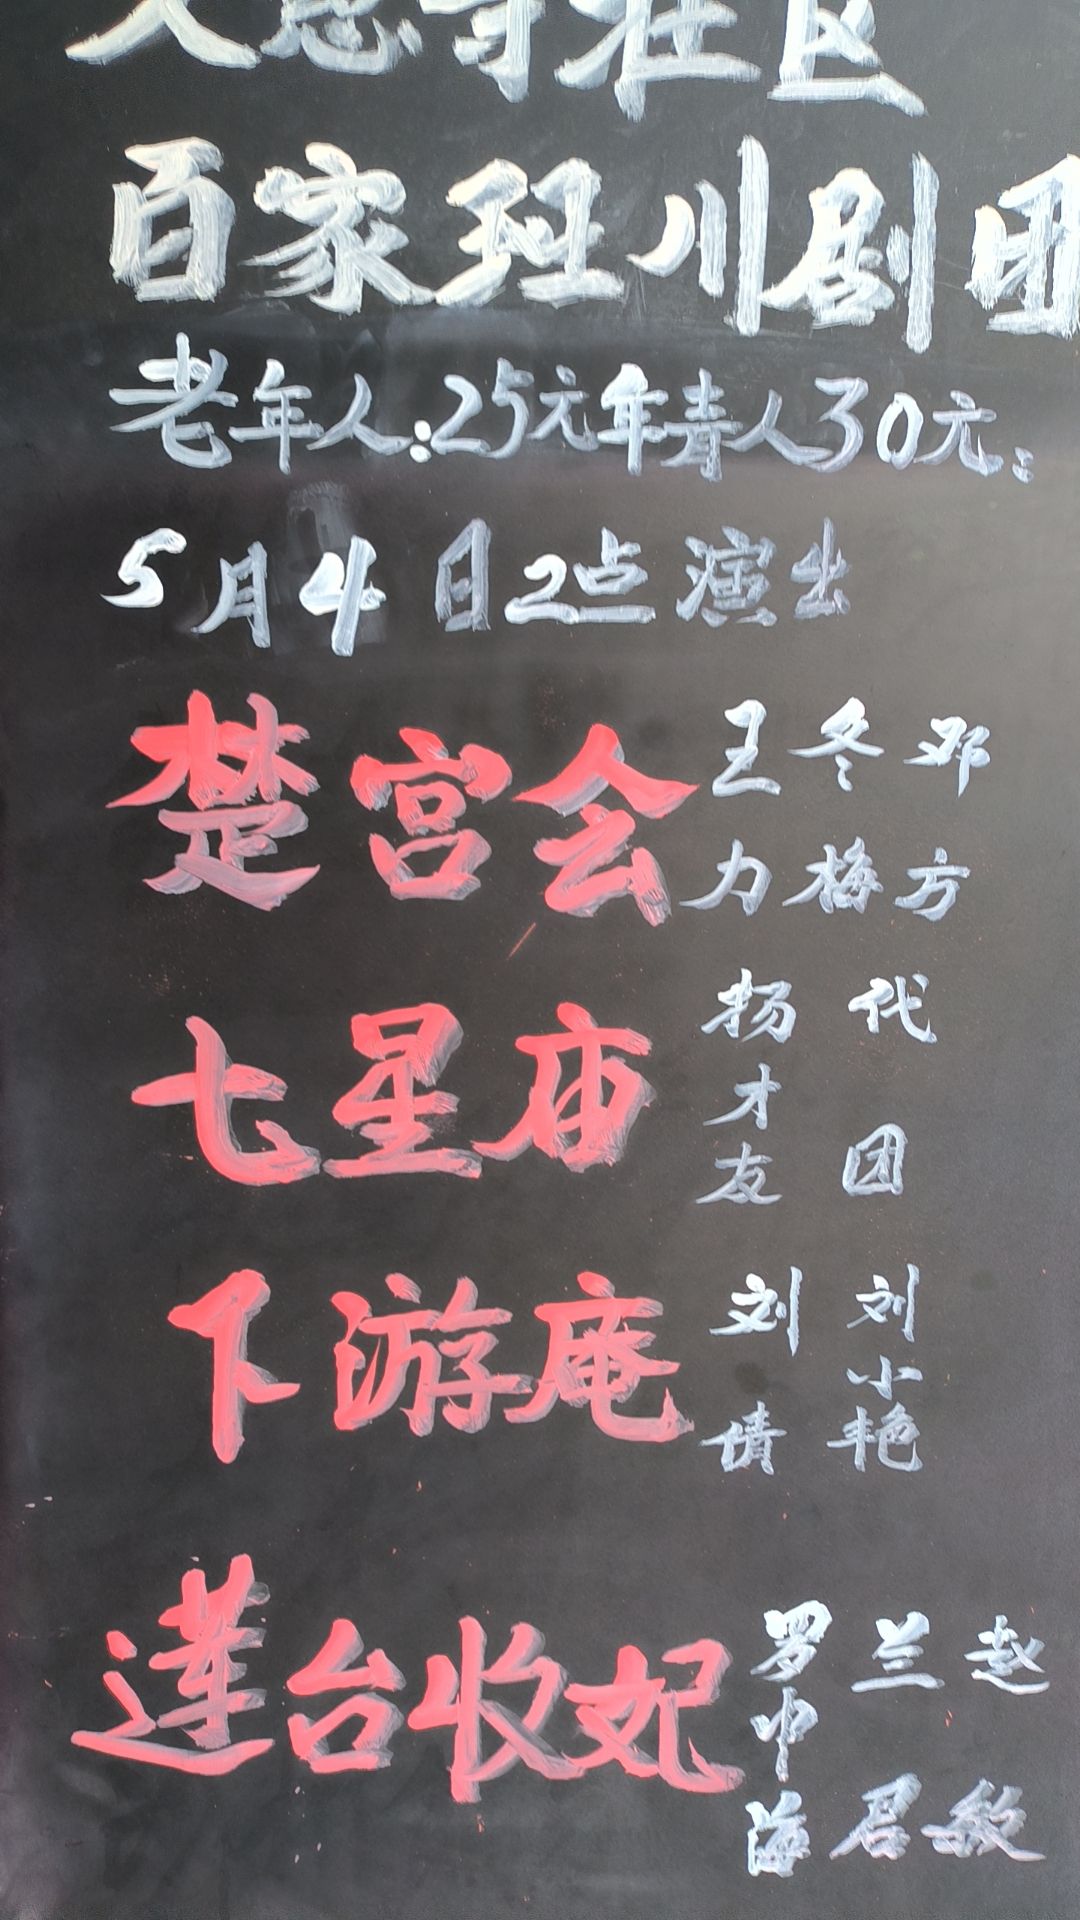 大慈寺社区
百家班川剧团
老年人:25元年青人30元:
5月4日2点演出
楚宫会 王力 冬梅 邓方
七星庙 扬才友 代团
下游庵 刘倩 刘小艳
莲台收妃 罗中海 兰君 赵敏